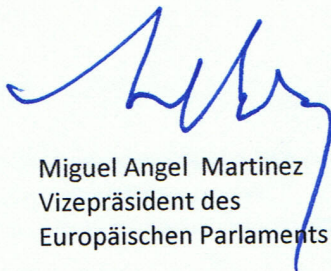 Miguel Angel Martinez
Vizepräsident des
Europäischen Parlaments